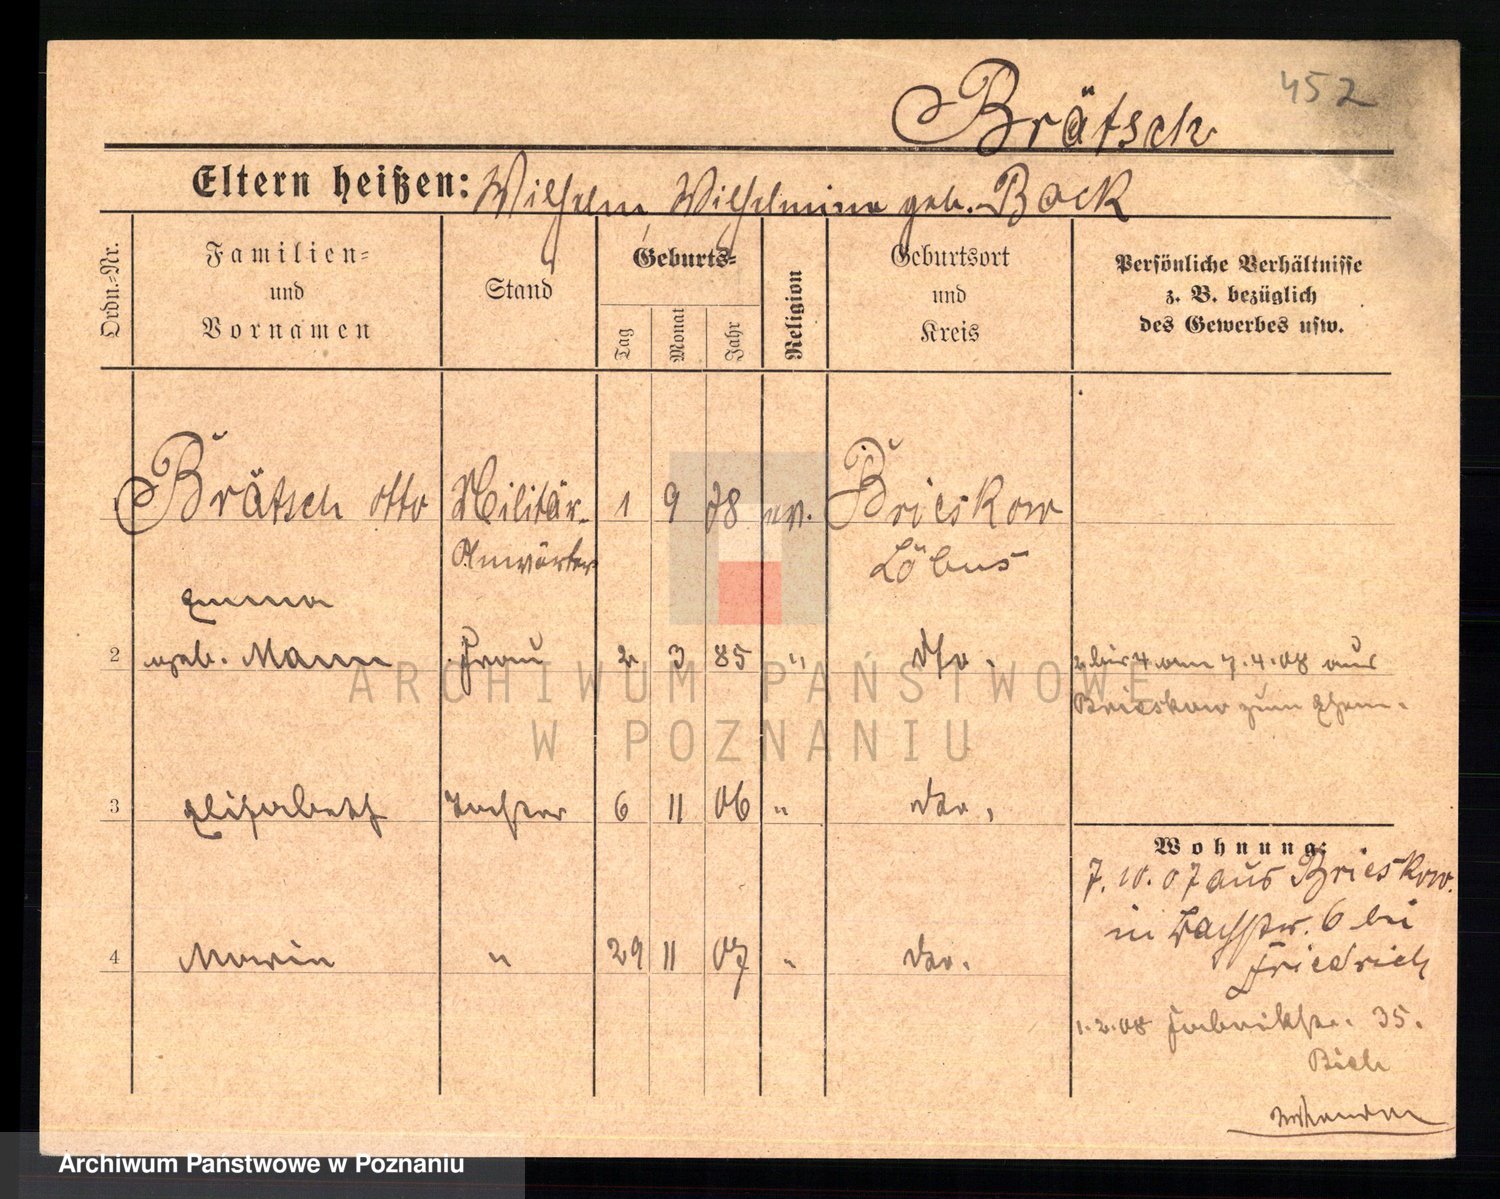 452
Brätsch
Eltern heißen: Wilhelm, Wilhelmine geb. Bock
Ordn.=Nr.
Familien=
und
Vornamen
Stand
Geburts=
Tag
Monat
Jahr
Religion
Geburtsort
und
Kreis
Persönliche Verhältnisse
z. B. bezüglich
des Gewerbes usw.
Brätsch Otto Militär- 1 9 78 ev. Brieskow
Anwärter Löbus
Emma
2 geb. Mann Frau 2 3 85 " dto. 2 bis 4 am 7.4.08 aus
Brieskow zum Ehem.
3 Elisabeth Tochter 6 11 06 " do.
Wohnung:
7.10.07 aus Brieskow.
in 6 bei
Friedrich
4 29 11 07 " do.
1.2.08 Fabrikstr. 35.
ARCHIWUM PAŃSTWOWE
W POZNANIU
Archiwum Państwowe w Poznaniu